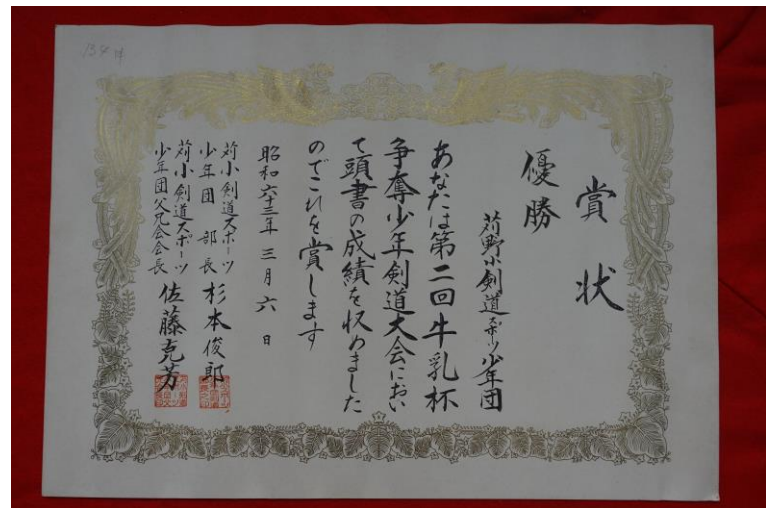 賞状
優勝
苅野小剣道スポーツ少年団
あなたは第二回牛乳杯
争奪少年剣道大会におい
て頭書の成績を収めました
のでこれを賞します
昭和六十三年三月六日
苅小剣道スポーツ
少年団部長杉本俊郎
苅小剣道スポーツ
少年団父兄会会長佐藤克芳